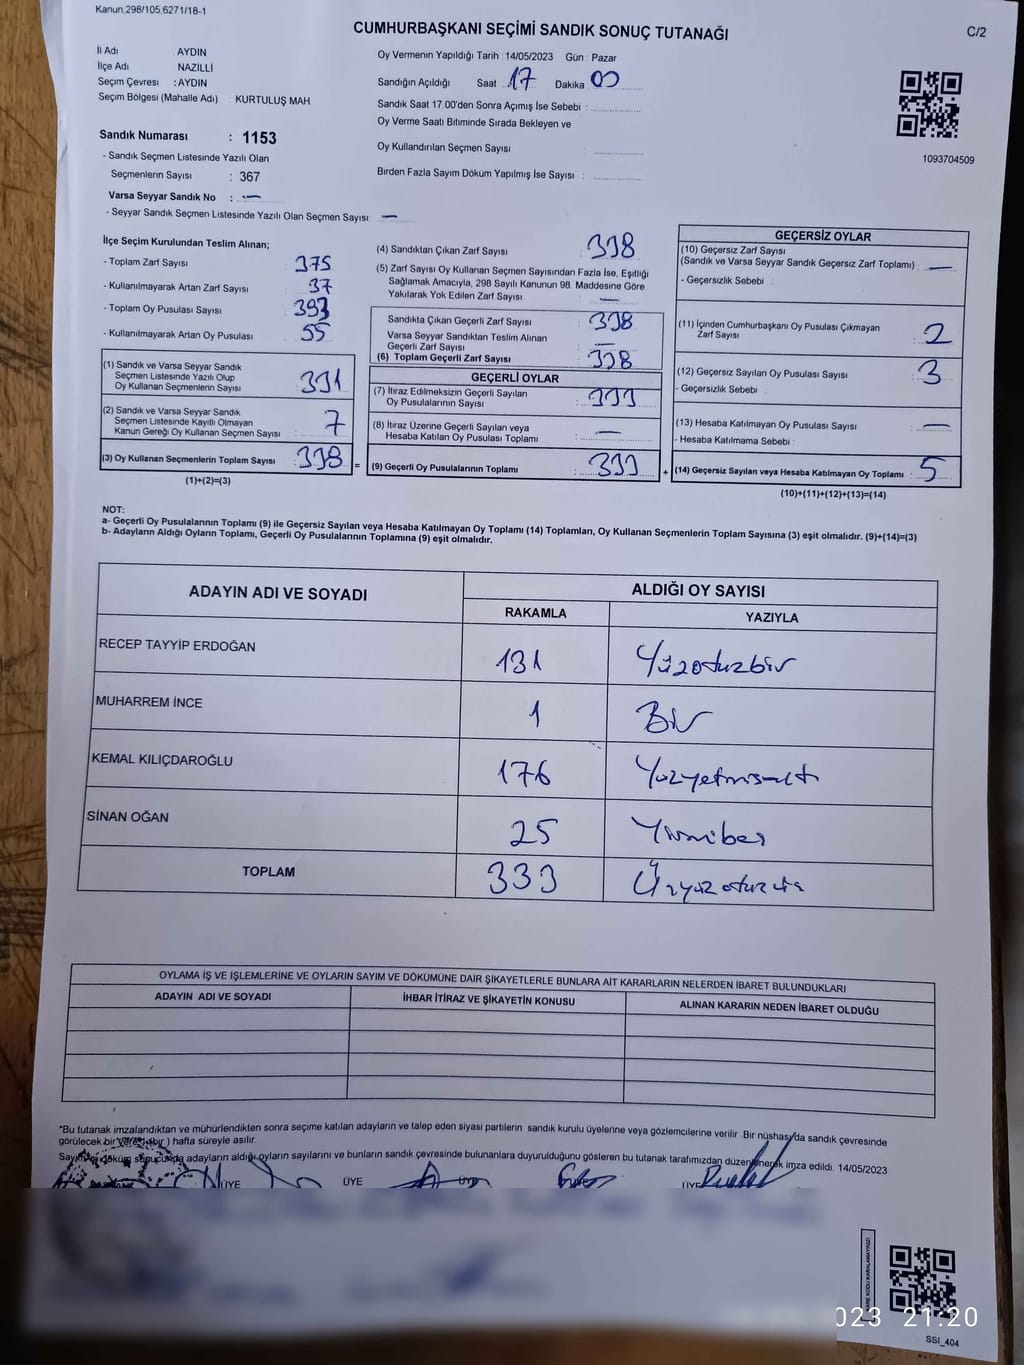 Kanun,298/105,6271/18-1
CUMHURBAŞKANI SEÇİMİ SANDIK SONUÇ TUTANAĞI
C/2
İl Adı AYDIN
İlçe Adı NAZİLLİ
Seçim Çevresi : AYDIN
Seçim Bölgesi (Mahalle Adı) : KURTULUŞ MAH
Oy Vermenin Yapıldığı Tarih : 14/05/2023 Gün : Pazar
Sandığın Açıldığı Saat 17 Dakika 00
Sandık Saat 17.00'den Sonra Açımış İse Sebebi :
Oy Verme Saati Bitiminde Sırada Bekleyen ve
Oy Kullandırılan Seçmen Sayısı :
Birden Fazla Sayım Döküm Yapılmış İse Sayısı :
1093704509
Sandık Numarası : 1153
- Sandık Seçmen Listesinde Yazılı Olan
Seçmenlerin Sayısı : 367
Varsa Seyyar Sandık No : —
- Seyyar Sandık Seçmen Listesinde Yazılı Olan Seçmen Sayısı : —
İlçe Seçim Kurulundan Teslim Alınan;
- Toplam Zarf Sayısı : 375
- Kullanılmayarak Artan Zarf Sayısı : 37
- Toplam Oy Pusulası Sayısı : 393
- Kullanılmayarak Artan Oy Pusulası : 55
(1) Sandık ve Varsa Seyyar Sandık
Seçmen Listesinde Yazılı Olup
Oy Kullanan Seçmenlerin Sayısı : 331
(2) Sandık ve Varsa Seyyar Sandık
Seçmen Listesinde Kayıtlı Olmayan
Kanun Gereği Oy Kullanan Seçmen Sayısı : 7
(3) Oy Kullanan Seçmenlerin Toplam Sayısı : 338
(1)+(2)=(3)
(4) Sandıktan Çıkan Zarf Sayısı : 338
(5) Zarf Sayısı Oy Kullanan Seçmen Sayısından Fazla İse, Eşitliği
Sağlamak Amacıyla, 298 Sayılı Kanunun 98. Maddesine Göre
Yakılarak Yok Edilen Zarf Sayısı : —
Sandıkta Çıkan Geçerli Zarf Sayısı : 338
Varsa Seyyar Sandıktan Teslim Alınan
Geçerli Zarf Sayısı : —
(6) Toplam Geçerli Zarf Sayısı : 338
GEÇERLİ OYLAR
(7) İtiraz Edilmeksizin Geçerli Sayılan
Oy Pusulalarının Sayısı : 333
(8) İtiraz Üzerine Geçerli Sayılan veya
Hesaba Katılan Oy Pusulası Toplamı : —
= (9) Geçerli Oy Pusulalarının Toplamı : 333
GEÇERSİZ OYLAR
(10) Geçersiz Zarf Sayısı
(Sandık ve Varsa Seyyar Sandık Geçersiz Zarf Toplamı) : —
- Geçersizlik Sebebi :
(11) İçinden Cumhurbaşkanı Oy Pusulası Çıkmayan
Zarf Sayısı : 2
(12) Geçersiz Sayılan Oy Pusulası Sayısı : 3
- Geçersizlik Sebebi :
(13) Hesaba Katılmayan Oy Pusulası Sayısı : —
- Hesaba Katılmama Sebebi :
+ (14) Geçersiz Sayılan veya Hesaba Katılmayan Oy Toplamı : 5
(10)+(11)+(12)+(13)=(14)
NOT:
a- Geçerli Oy Pusulalarının Toplamı (9) ile Geçersiz Sayılan veya Hesaba Katılmayan Oy Toplamı (14) Toplamları, Oy Kullanan Seçmenlerin Toplam Sayısına (3) eşit olmalıdır. (9)+(14)=(3)
b- Adayların Aldığı Oyların Toplamı, Geçerli Oy Pusulalarının Toplamına (9) eşit olmalıdır.
ADAYIN ADI VE SOYADI ALDIĞI OY SAYISI
RAKAMLA YAZIYLA
RECEP TAYYİP ERDOĞAN 131 Yüzotuzbir
MUHARREM İNCE 1 Bir
KEMAL KILIÇDAROĞLU 176 Yüzyetmişaltı
SİNAN OĞAN 25 Yirmibeş
TOPLAM 333 Üçyüzotuzüç
OYLAMA İŞ VE İŞLEMLERİNE VE OYLARIN SAYIM VE DÖKÜMÜNE DAİR ŞİKAYETLERLE BUNLARA AİT KARARLARIN NELERDEN İBARET BULUNDUKLARI
ADAYIN ADI VE SOYADI İHBAR İTİRAZ VE ŞİKAYETİN KONUSU ALINAN KARARIN NEDEN İBARET OLDUĞU
*Bu tutanak imzalandıktan ve mühürlendikten sonra seçime katılan adayların ve talep eden siyasi partilerin sandık kurulu üyelerine veya gözlemcilerine verilir. Bir nüshası da sandık çevresinde
görülecek bir yere (bir) hafta süreyle asılır.
Sayım ve döküm sonucunda adayların aldığı oyların sayılarını ve bunların sandık çevresinde bulunanlara duyurulduğunu gösteren bu tutanak tarafımızdan düzenlenerek imza edildi. 14/05/2023
ÜYE ÜYE ÜYE ÜYE
023 21:20
SSI_404